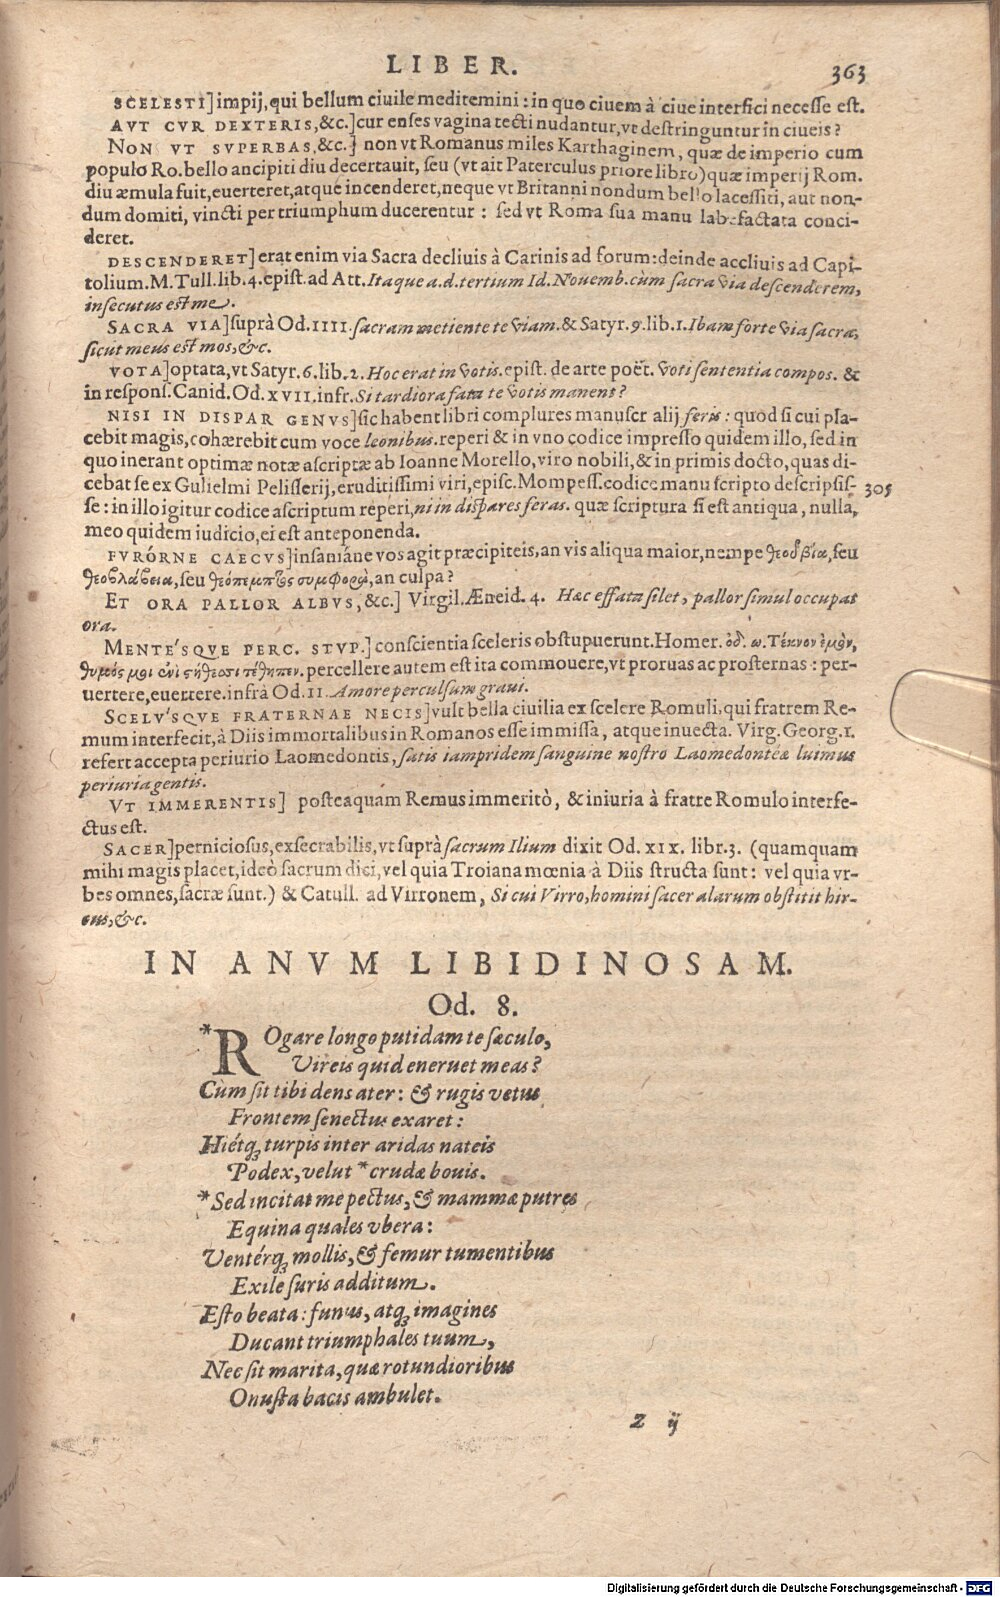 LIBER. 363
SCELESTI] impij, qui bellum ciuile meditemini: in quo ciuem à ciue interfici necesse est.
AVT CVR DEXTERIS, &c.] cur enses vagina tecti nudantur, vt destringuntur in ciueis?
NON VT SVPERBAS, &c.] non vt Romanus miles Karthaginem, quæ de imperio cum
populo Ro. bello ancipiti diu decertauit, seu (vt ait Paterculus priore libro) quæ imperij Rom.
diu æmula fuit, euerteret, atque incenderet, neque vt Britanni nondum bello lacessiti, aut non-
dum domiti, vincti per triumphum ducerentur: sed vt Roma sua manu labefactata conci-
deret.
DESCENDERET] erat enim via Sacra decliuis à Carinis ad forum: deinde accliuis ad Capi-
tolium. M. Tull. lib. 4. epist. ad Att. Itaque a. d. tertium Id. Nouemb. cùm sacra via descenderem,
insecutus est me.
SACRA VIA] suprà Od. IIII. sacram metiente te viam. & Satyr. 9. lib. 1. Ibam forte via sacra,
sicut meus est mos, &c.
VOTA] optata, vt Satyr. 6. lib. 2. Hoc erat in votis. epist. de arte poët. voti sententia compos. &
in respons. Canid. Od. XVII. infr. Si tardiora fata te votis manent?
NISI IN DISPAR GENVS] sic habent libri complures manuscr alij feris: quod si cui pla-
cebit magis, cohærebit cum voce leonibus. reperi & in vno codice impresso quidem illo, sed in
quo inerant optimæ notæ ascriptæ ab Ioanne Morello, viro nobili, & in primis docto, quas di-
cebat se ex Gulielmi Pelisserij, eruditissimi viri, episc. Mompess. codice manu scripto descripsis- 305
se: in illo igitur codice ascriptum reperi, ni in dispares feras. quæ scriptura si est antiqua, nulla,
meo quidem iudicio, ei est anteponenda.
FVRÓRNE CAECVS] insaniáne vos agit præcipiteis, an vis aliqua maior, nempe θεοῦ βία, seu
θεοβλάβεια, seu θεόπεμπτος συμφορὰ, an culpa?
ET ORA PALLOR ALBVS, &c.] Virgil. Æneid. 4. Hæc effata silet, pallor simul occupat
ora.
MENTE'SQVE PERC. STVP.] conscientia sceleris obstupuerunt. Homer. ὀδ. ω. Τέκνον ἐμὸν,
θυμός μοι ἐνὶ στήθεσσι τέθηπεν. percellere autem est ita commouere, vt proruas ac prosternas: per-
uertere, euertere. infrà Od. 11. Amore perculsum graui.
SCELV'SQVE FRATERNAE NECIS] vult bella ciuilia ex scelere Romuli, qui fratrem Re-
mum interfecit, à Diis immortalibus in Romanos esse immissa, atque inuecta. Virg. Georg. 1.
refert accepta periurio Laomedontis, satis iampridem sanguine nostro Laomedontéæ luimus
periuria gentis.
VT IMMERENTIS] posteaquam Remus immeritò, & iniuria à fratre Romulo interfe-
ctus est.
SACER] perniciosus, exsecrabilis, vt suprà sacrum Ilium dixit Od. XIX. libr. 3. (quamquam
mihi magis placet, ideò sacrum dici, vel quia Troiana mœnia à Diis structa sunt: vel quia vr-
bes omnes, sacræ sunt.) & Catull. ad Virronem, Si cui Virro, homini sacer alarum obstitit hir-
cus, &c.
IN ANVM LIBIDINOSAM.
Od. 8.
*ROgare longo putidam te sæculo,
Vireis quid eneruet meas?
Cum sit tibi dens ater: & rugis vetus
Frontem senectus exaret:
Hiétq; turpis inter aridas nateis
Podex, velut *crudæ bouis.
*Sed incitat me pectus, & mammæ putres
Equina quales vbera:
Ventérq; mollis, & femur tumentibus
Exile suris additum.
Esto beata: funus, atq; imagines
Ducant triumphales tuum,
Nec sit marita, quæ rotundioribus
Onusta bacis ambulet.
Z ij
Digitalisierung gefördert durch die Deutsche Forschungsgemeinschaft - DFG